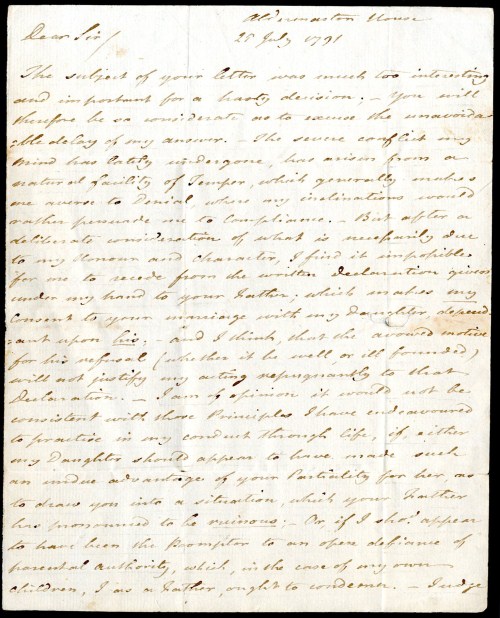 Aldermaston House
Dear Sir/ 25 July 1791
The subject of your letter was much too interesting
and important for a hasty decision; – You will
therefore be so considerate as to excuse the unavoida
ble delay of my answer. – The severe conflict my
mind has lately undergone, has arisen from a
natural facility of Temper, which generally makes
me averse to Denial, where my inclinations would
rather persuade me to Compliance. – But after a
deliberate consideration of what is necessarily due
to my Honour and Character, I find it impossible
for me to recede from the written Declaration given
under my hand to your Father; which makes my
Consent to your marriage with my Daughter, depend-
ant upon his; – and I think, that the avowed motive
for his refusal (whether it be well or ill founded)
will not justify my acting repugnantly to that
Declaration. – I am of opinion it would not be
consistent with those Principles I have endeavoured
to practice in my conduct through life, if, either
my Daughter should appear to have made such
an undue advantage of your Partiality for her, as
to draw you into a situation, which your Father
has pronounced to be ruinous; – Or if I shod. appear
to have been the Prompter to an open defiance of
parental Authority, which, in the case of my own
Children, I as a Father, ought to condemn. – Judge